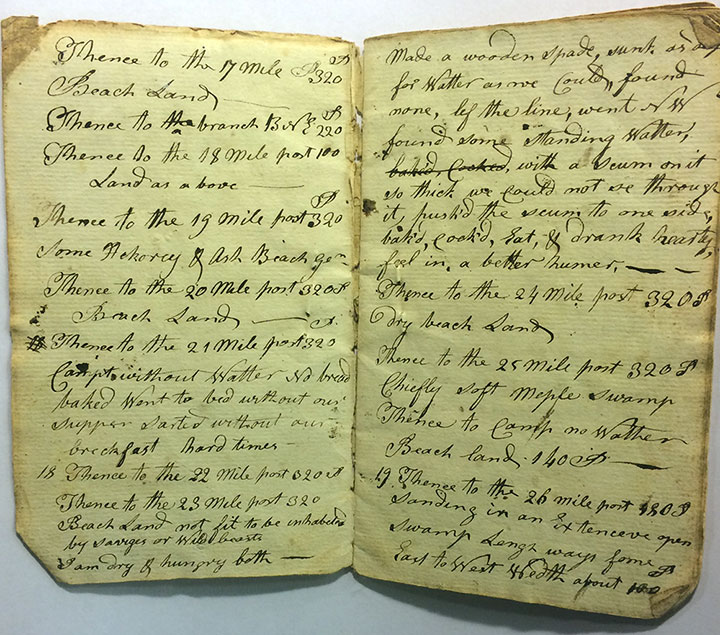 Thence to the 17 Mile P 320 P
Beach Land
Thence to the branch B N E 220 P
Thence to the 18 Mile post 100
Land as above
Thence to the 19 Mile post 320 P
Some Hekorey & Ash Beach &c
Thence to the 20 Mile post 320 P
Beach Land
Thence to the 21 Mile post 320 P
Campt without Watter No bread
baked Went to bed without our
supper Sarted without our
breckfast hard times
18 Thence to the 22 Mile post 320 P
Thence to the 23 Mile post 320
Beach Land not fit to be inhabeted
by saviges or Wild bearts
I am dry & hungry both
Made a wooden spade, sunk as deep
for Watter as we Could, found
none, lef the line, went N W
found some Standing Watter,
baked, Cooked, with a Scum on it
so thick we Could not se through
it, push'd the scum to one side,
bak'd, Cook'd, Eat, & drank hearty,
feel in a better humer,
Thence to the 24 Mile post 320 P
dry beach Land
Thence to the 25 Mile post 320 P
Chiefly Soft Meple Swamp
Thence to Camp no Watter
Beach land 140 P
19 Thence to the 26 mile post 180 P
Landing in an Extenceve open
Swamp Lengh ways from
East to West Wedth about 100 P